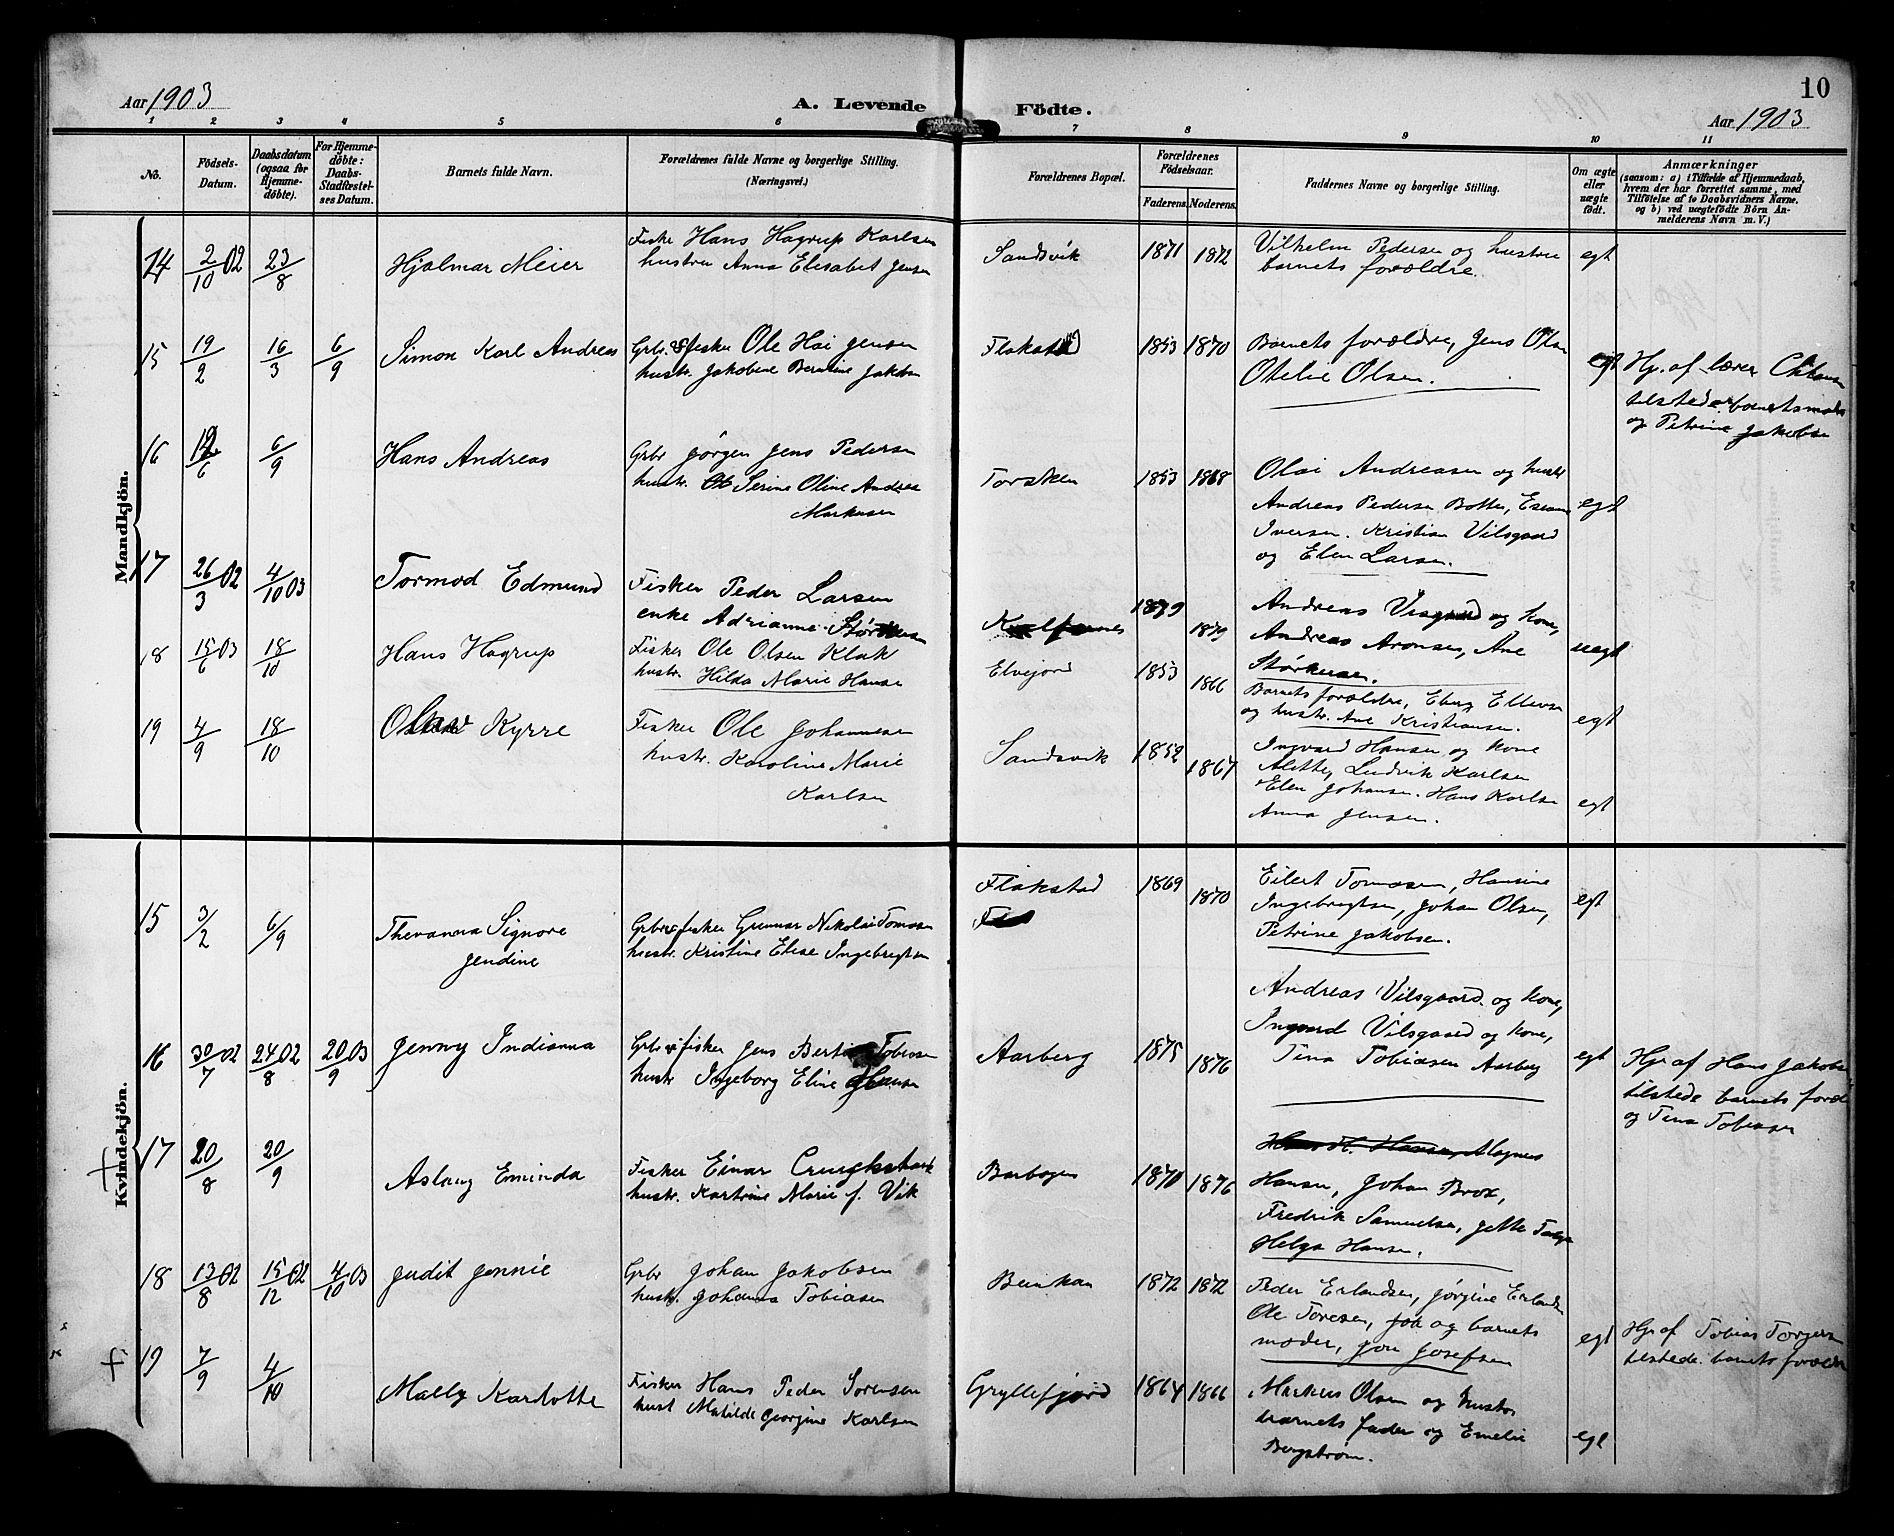 Aar 1903
A. Levende Födte.
10
Aar 1903
1 2 3 4 5 6 7 8 9 10 11
No.
Födsels-Datum.
Daabsdatum (ogsaa for Hjemmedöbte).
For Hjemmedöbte: Daabs-Stadfæstelses Datum.
Barnets fulde Navn.
Forældrenes fulde Navne og borgerlige Stilling.
(Næringsvei.)
Forældrenes Bopæl.
Forældrenes Födselsaar.
Faderens. Moderens.
Faddernes Navne og borgerlige Stilling.
Om ægte eller uægte födt.
Anmærkninger
(saasom: a) i Tilfælde af Hjemmedaab,
hvem der har forrettet samme, med
Tilföielse af to Daabsvidners Navne.
og b) ved uægtefödte Börn An-
melderens Navn m. V.)
Mandkjön.
14 2/10 02 23/8 Hjalmar Meier
Fisker Hans Hagrup Karlsen
hustru Anna Elisabet Jensen
Sandsvik 1871 1872
Vilhelm Pedersen og hustru
barnets forældre.
egt
15 19/2 16/3 6/9 Simon Karl Andreas
Grbr. & fisker Ole Hai Jensen
hustr. Jakobine Berntine Jakobsen
Flakstad 1853 1870
Barnets forældre, Jens Olsen
Otelie Olsen.
egt
Hj. af lærer
tilstede barnets moder
og Petrine Jakobsen
16 6/9 Hans Andreas
Grbr Jørgen Jens Pedersen
hustr. Serine Oline Andrea
Markusen
Torsken 1853 1868
Olai Andreasen og hustr
Andreas Pedersen Botten,
Iversen. Kristian Vilsgaard
og Elen Larsen.
egt
17 26/3 02 4/10 03 Tormod Edmund
Fisker Peder Larsen
enke Adrianne
1879 1879
Andreas Visgaard og kone,
Andreas Aronsen, Ane
Størkersen.
uegt
18 15/6 03 18/10 Hans Hagrup
Fisker Ole Olsen Klak
hustr. Hilda Marie Hansen
Elvejord 1853 1866
Barnets forældre, Eberg Ellevsen
og hustr. Ane Kristiansen.
egt
19 4/9 18/10 Olav Kyrre
Fisker Ole Johannesen
hustr. Karoline Marie
Karlsen
Sandsvik 1852 1867
Ingvard Hansen og kone
Alette, Ludvik Karlsen
Elen Johansen. Hans Karlsen
Anna Jensen.
egt
Kvindekjön.
15 3/2 6/9 Thevanna Signore
Jendine
Grbr & fisker Gunnar Nikolai Tomasen
hustr. Kristine Elise Ingebregtsen
Flakstad 1869 1870
Eilert Tomasen, Hansine
Ingebregtsen, Johan Olsen,
Petrine Jakobsen.
egt
16 30/7 02 24/8 02 20/9 03 Jenny Indianna
Grbr & fisker Jens Tobiasen
hustr Ingeborg Eline
Aarberg 1875 1876
Andreas Vilsgaard og kone,
Ingvard Vilsgaard og kone,
Tina Tobiasen Aarberg
egt
Hj. af Hans Jakobsen
tilstede barnets foræld
og Tina Tobiasen
17 20/8 20/9 Aslaug Eminda
Fisker Einar
hustr. Katrine Marie f. Vik
Barbogen 1870 1876
Hans H. Hansen, Magnus
Hansen, Johan Brox,
Fredrik Samuelsen, Jette
Helga Hansen.
18 13/8 02 15/12 02 4/10 03 Judit Jennie
Grbr Johan Jakobsen
hustr. Johanna Tobiasen
Bunkan 1872 1872
Peder Erlandsen, Jørgine Erlandsen
Ole Toresen, og barnets
moder, Jon Josefsen
egt
Hj. af Tobias Torgersen
tilstede. barnets forældre
19 7/9 4/10 Mally Kardotte
Fisker Hans Peder Sørensen
hust Matilde Georgine Karlsen
Gryllefjord 1864 1866
Markus Olsen og hustru
barnets fader og Emelie
Bergstrøm.
egt